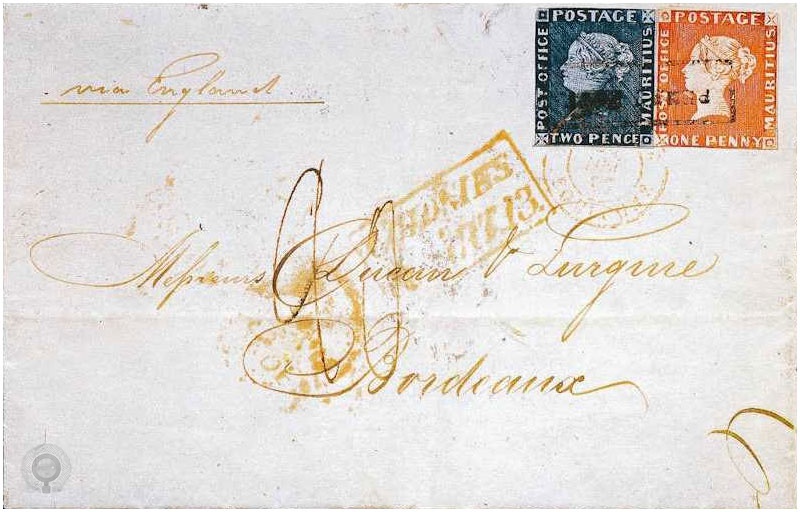 via England
POSTAGE
POST OFFICE
MAURITIUS
TWO PENCE
POSTAGE
POST OFFICE
MAURITIUS
ONE PENNY
ART.13.
Messieurs Ducau & Lurguie
Bordeaux